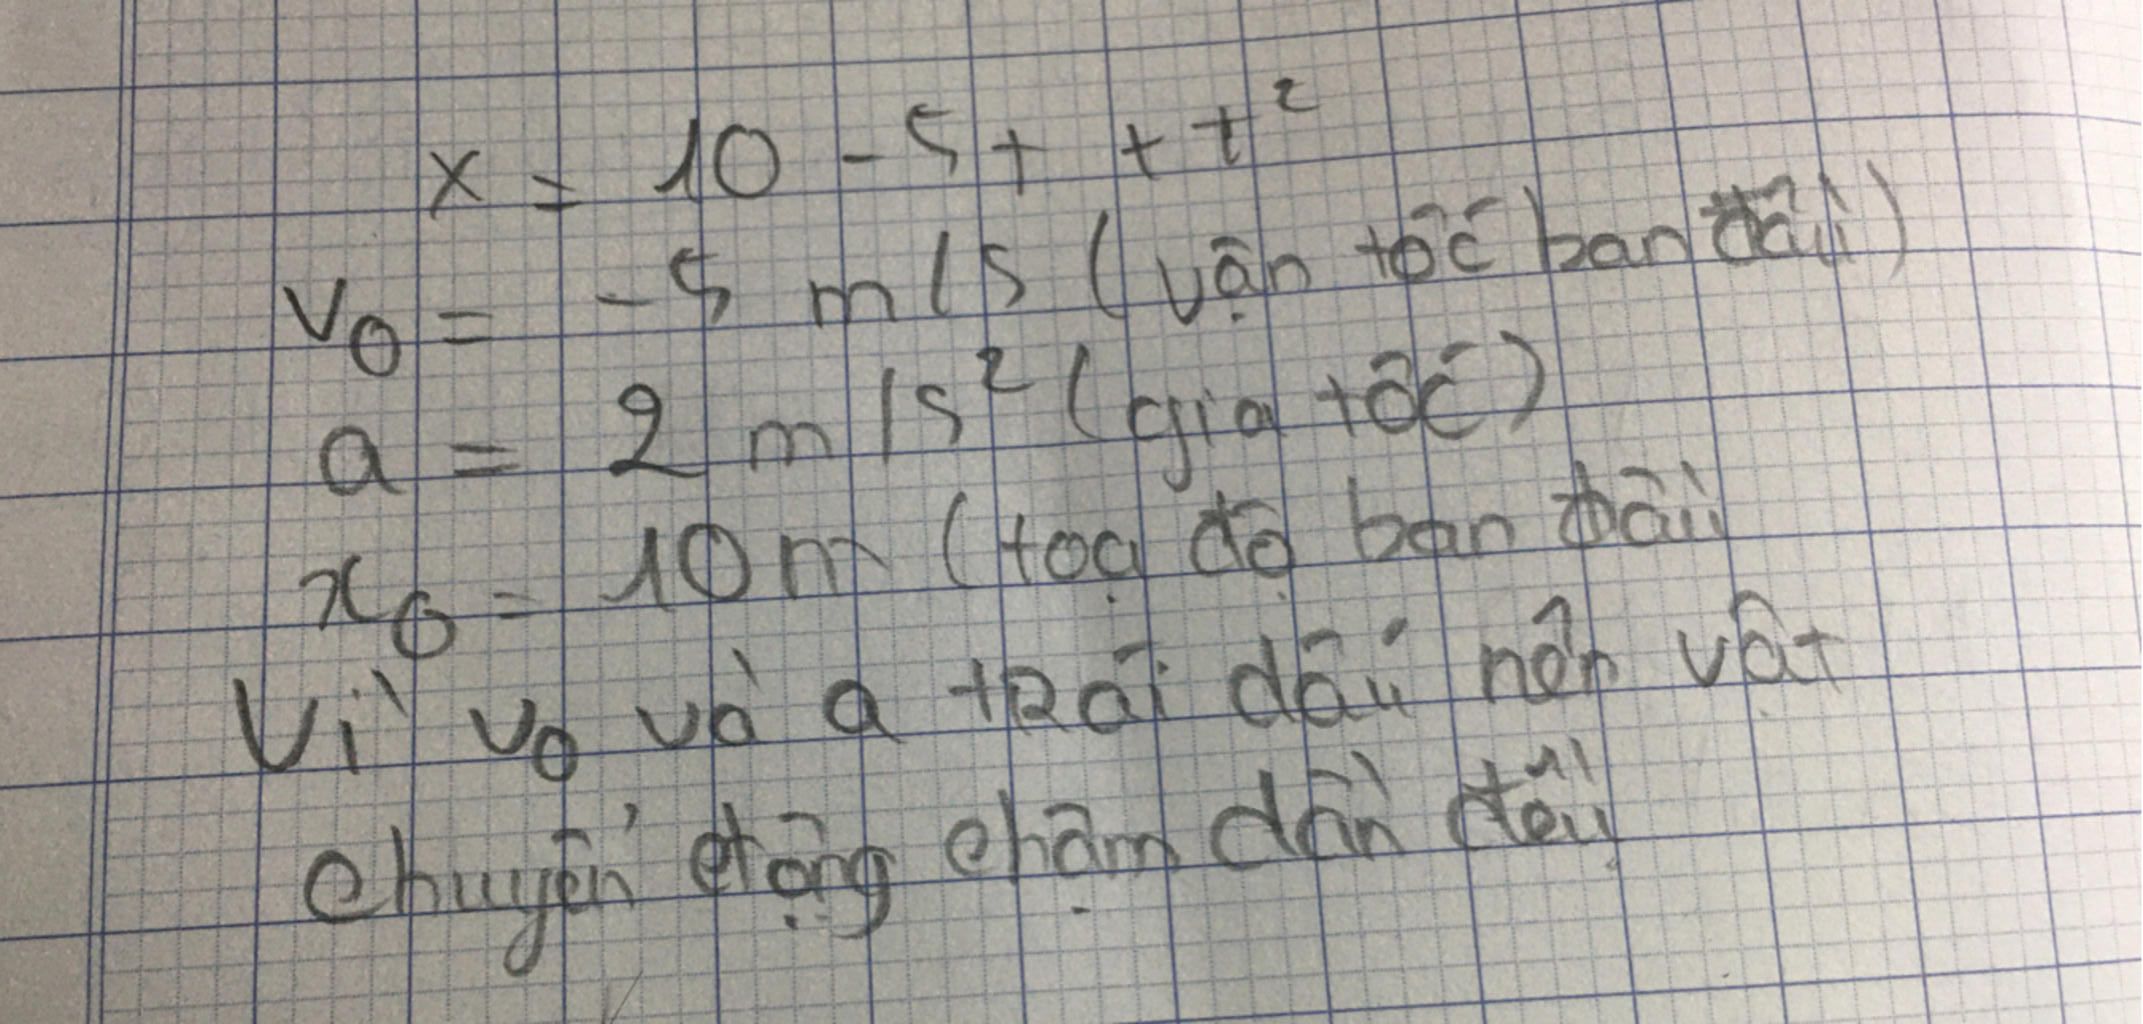 x = 10 - 5t + t²
v₀ = -5 m/s (vận tốc ban đầu)
a = 2 m/s² (gia tốc)
x₀ = 10m (toạ độ ban đầu
Vì v₀ và a trái dấu nên vật
chuyển động chậm dần đều